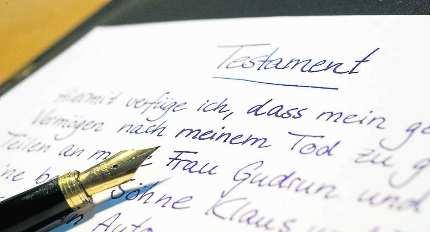 Testament
Hiermit verfüge ich, dass mein
Vermögen nach meinem Tod zu
Teilen an Frau Gudrun und
Söhne Klaus
Auto